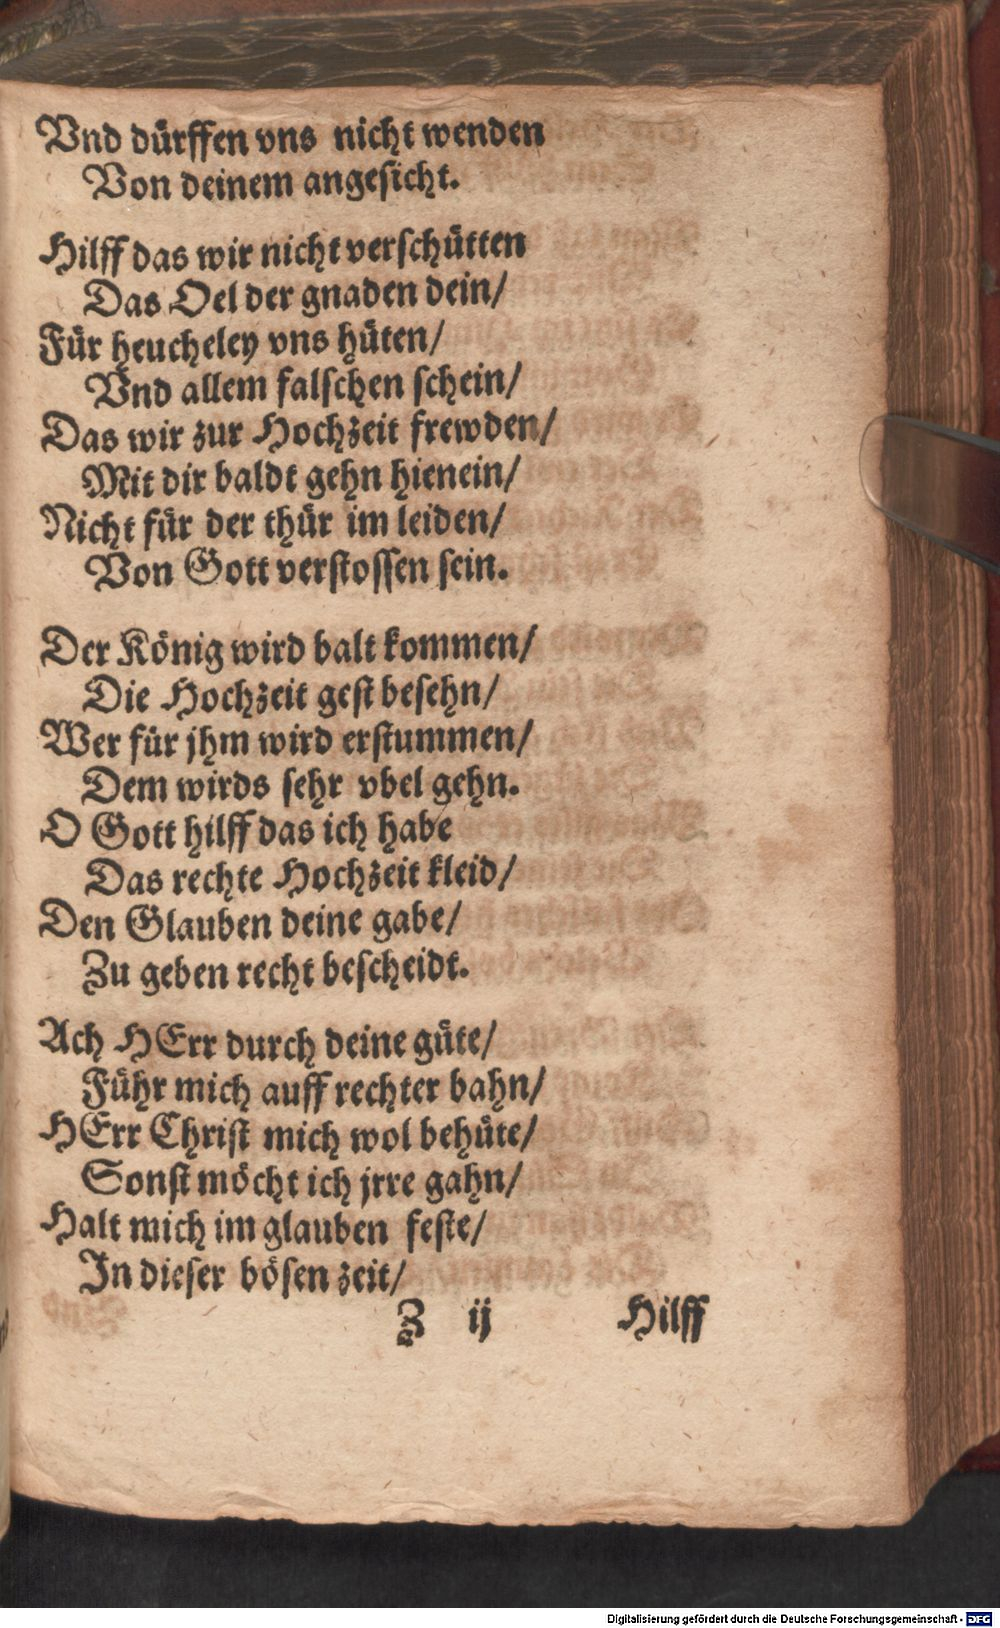 Vnd dürffen vns nicht wenden
Von deinem angesicht.
Hilff das wir nicht verschütten
Das Oel der gnaden dein/
Für heucheley vns hüten/
Vnd allem falschen schein/
Das wir zur Hochzeit frewden/
Mit dir baldt gehn hienein/
Nicht für der thür im leiden/
Von Gott verstossen sein.
Der König wird balt kommen/
Die Hochzeit gest besehn/
Wer für jhm wird erstummen/
Dem wirds sehr vbel gehn.
O Gott hilff das ich habe
Das rechte Hochzeit kleid/
Den Glauben deine gabe/
Zu geben recht bescheidt.
Ach HErr durch deine güte/
Führ mich auff rechter bahn/
HErr Christ mich wol behüte/
Sonst möcht ich jrre gahn/
Halt mich im glauben feste/
In dieser bösen zeit/
Z ij Hilff
Digitalisierung gefördert durch die Deutsche Forschungsgemeinschaft - DFG